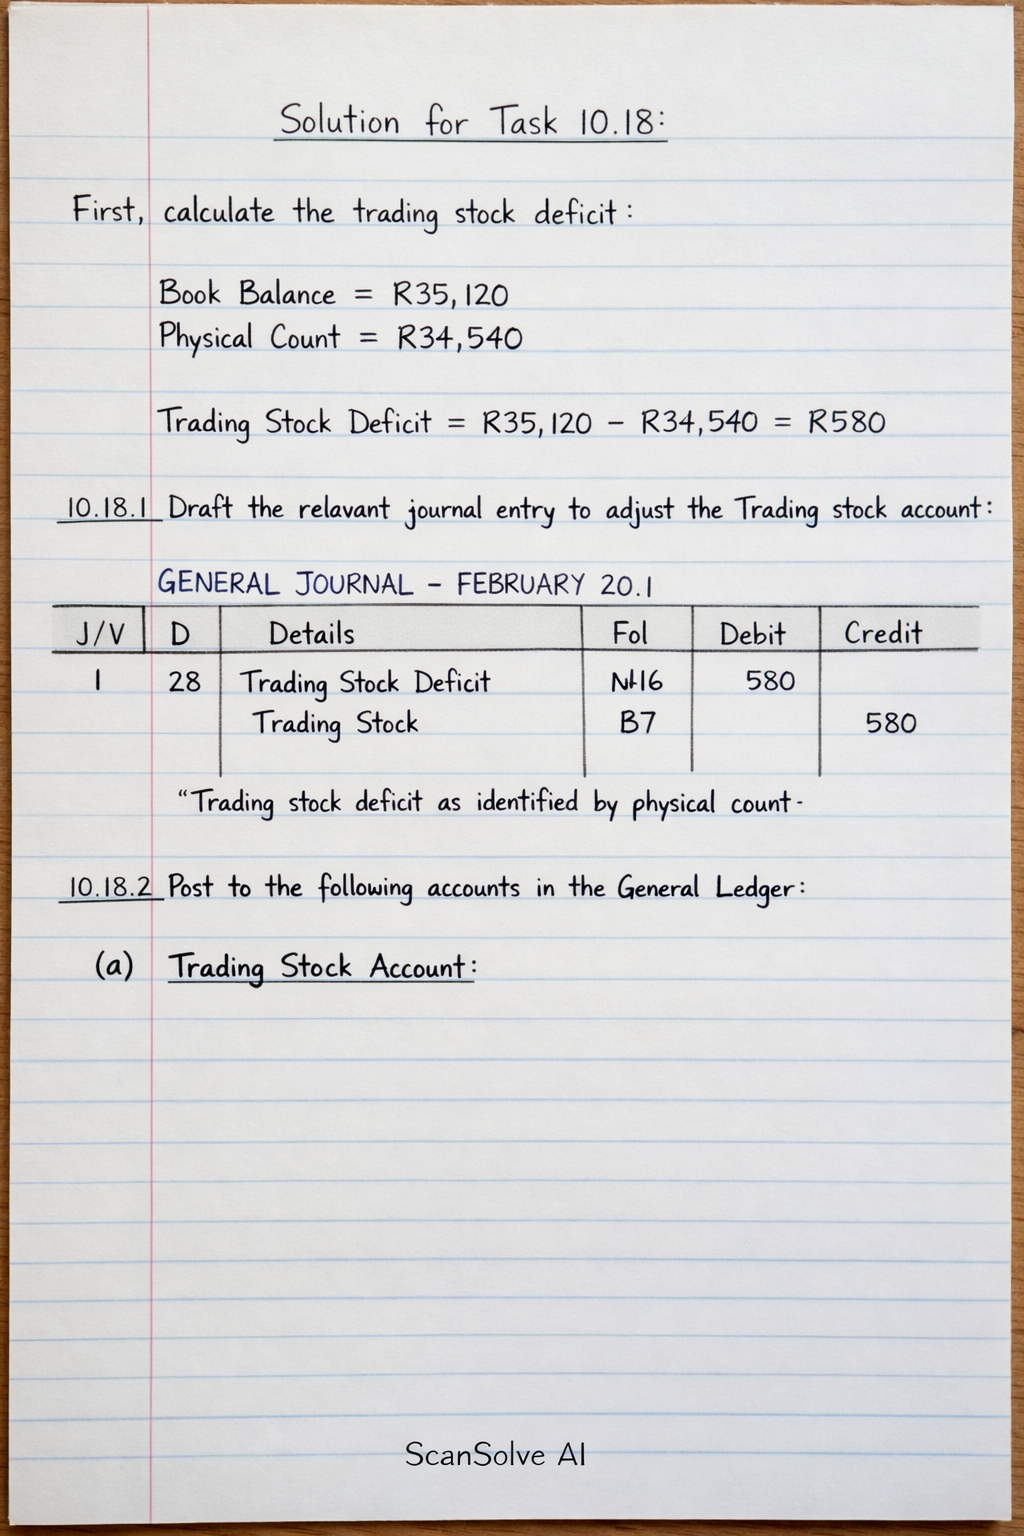 Solution for Task 10.18:
First, calculate the trading stock deficit:
Book Balance = R35,120
Physical Count = R34,540
Trading Stock Deficit = R35,120 – R34,540 = R580
10.18.1 Draft the relavant journal entry to adjust the Trading stock account:
GENERAL JOURNAL – FEBRUARY 20.1
J/V D Details Fol Debit Credit
1 28 Trading Stock Deficit 580
Trading Stock B7 580
“Trading stock deficit as identified by physical count-
10.18.2 Post to the following accounts in the General Ledger:
(a) Trading Stock Account:
ScanSolve AI